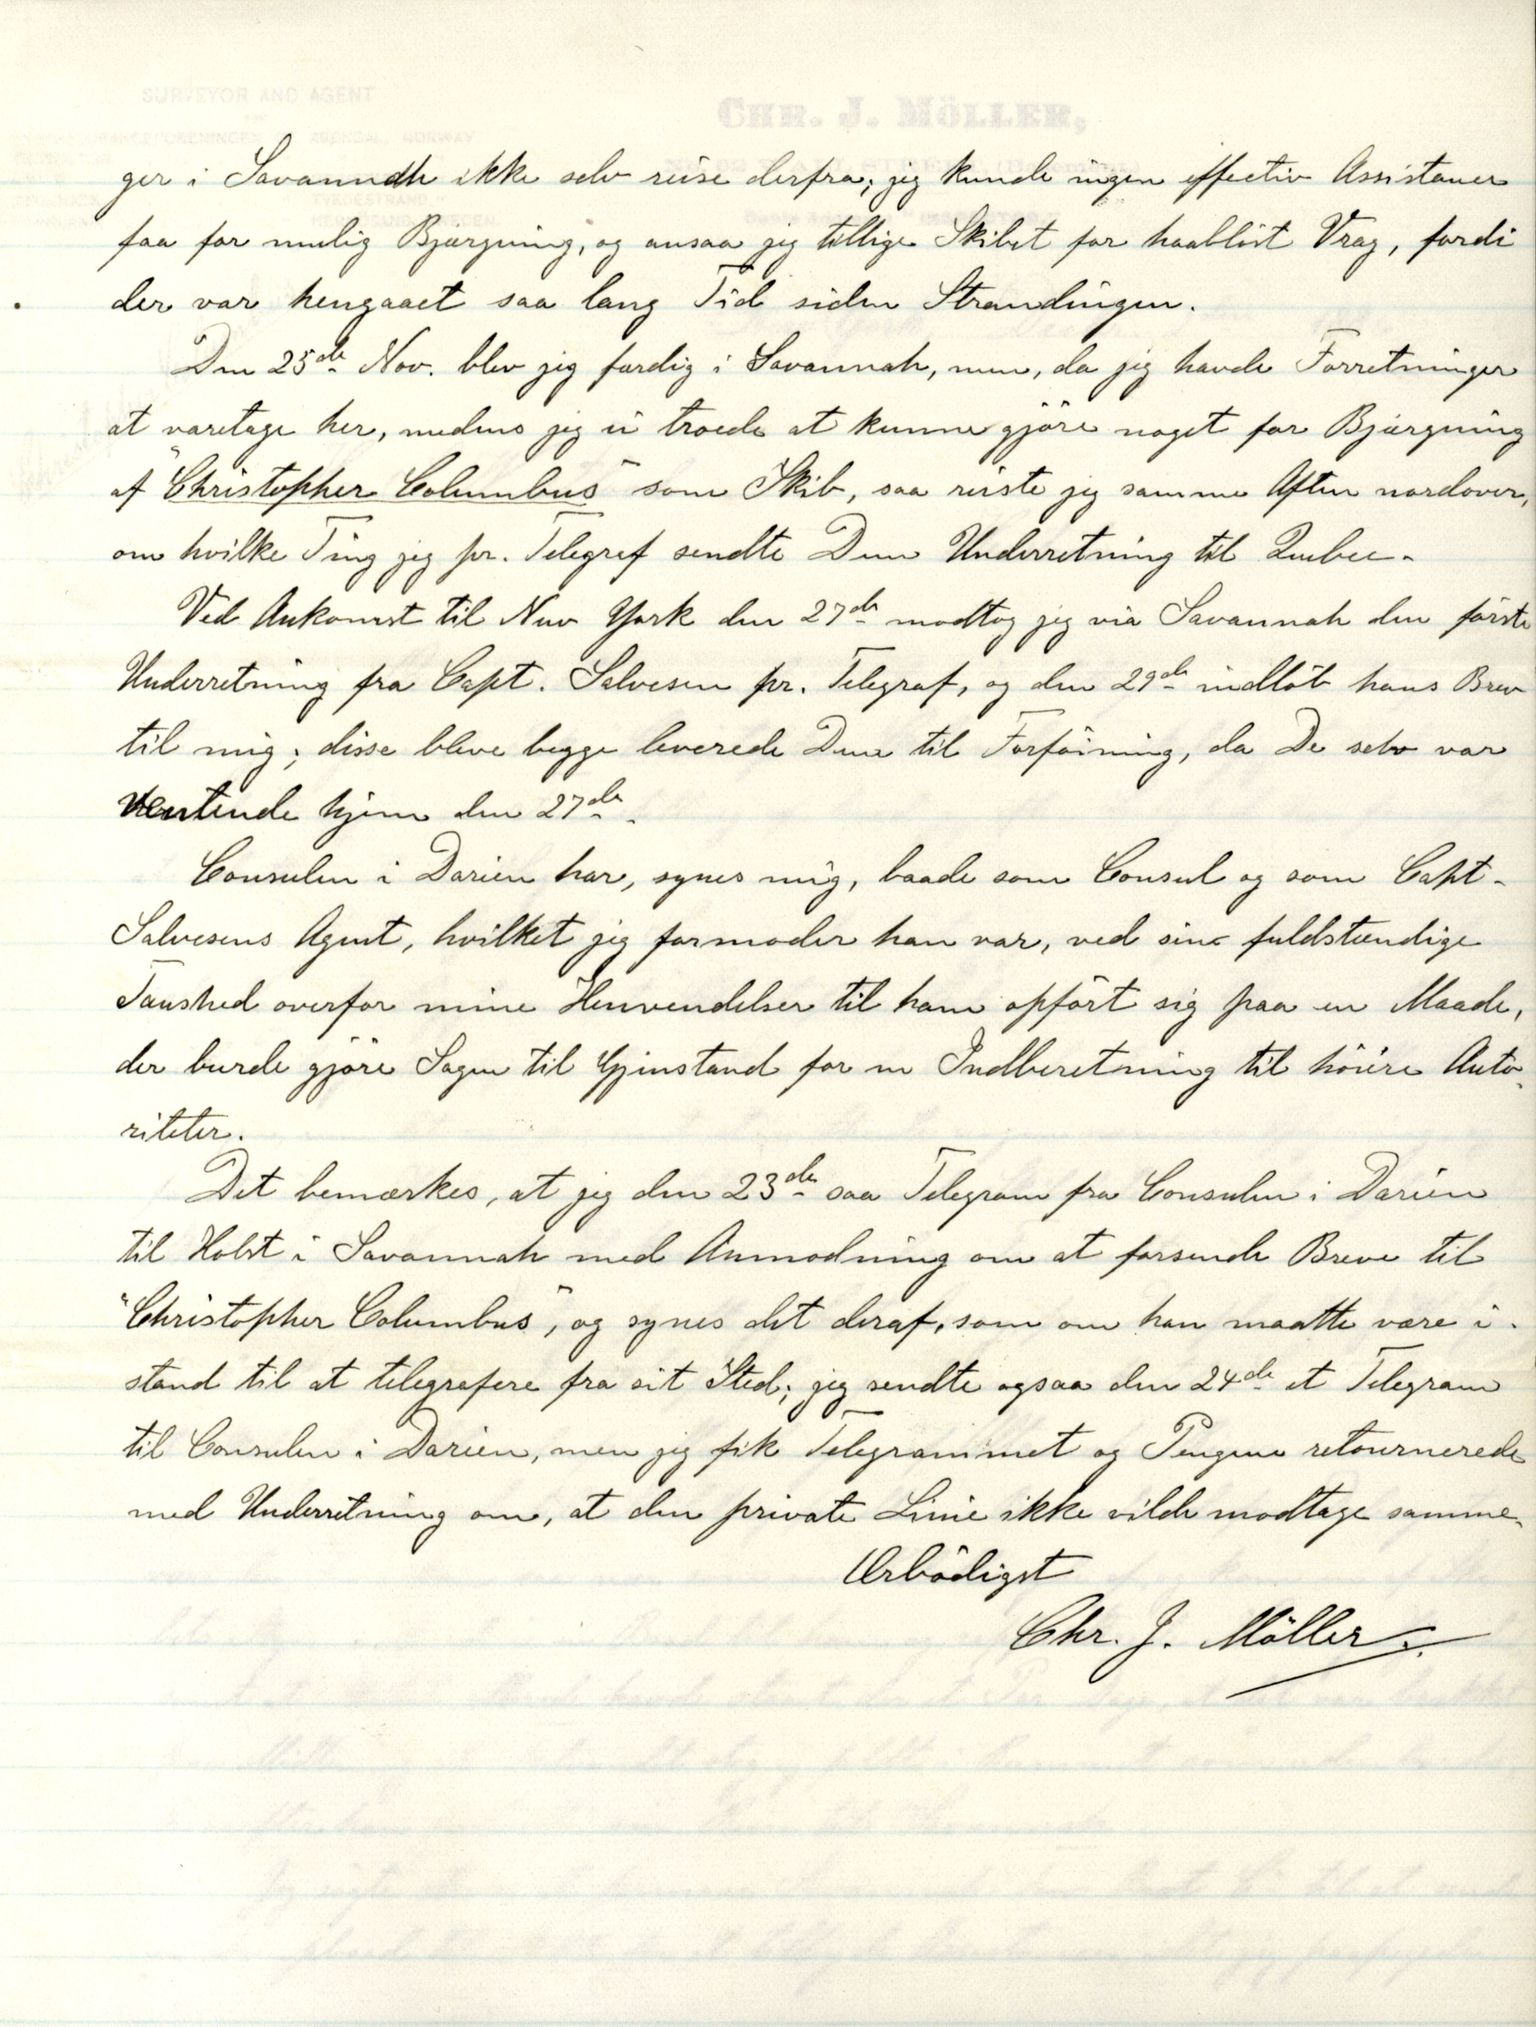 ger i Savannah ikke selv reise derfra; jeg kunde ingen effectiv Assistance
faa for mulig Bjærgning, og ansaa jeg tillige Skibet for haablöst Vrag, fordi
der var hengaaet saa lang Tid siden Strandingen.
Den 25de Nov. blev jeg færdig i Savannah, men, da jeg havde Forretninger
at varetage her, medens jeg ei troede at kunne gjöre noget for Bjærgning
af "Christopher Columbus" som Skib, saa reiste jeg samme Aften nordover,
om hvilke Ting jeg pr. Telegraf sendte Dem Underretning til Quebec.
Ved Ankomst til New York den 27de modtog jeg via Savannah den förste
Underretning fra Capt. Salvesen pr. Telegraf, og den 29de indlöb hans Brev
til mig; disse bleve begge leverede Dem til Forföining, da De selv var
ventende hjem den 27de.
Consulen i Darien har, synes mig, baade som Consul og som Capt.
Salvesens Agent, hvilket jeg formoder han var, ved sin fuldstændige
Taushed overfor mine Henvendelser til ham opfört sig paa en Maade,
der burde gjöre Sagen til Gjenstand for en Indberetning til höiere Auto-
riteter.
Det bemærkes, at jeg den 23de saa Telegram fra Consulen i Darien
til Holst i Savannah med Anmodning om at forsende Breve til
"Christopher Columbus", og synes det deraf, som om han maatte være i-
stand til at telegrafere fra sit Sted; jeg sendte ogsaa den 24de et Telegram
til Consulen i Darien, men jeg fik Telegrammet og Pengene retournerede
med Underretning om, at den private Linie ikke vilde modtage samme.
Ærbödigst
Chr. J. Möller.
CHR. J. MÖLLER,
SURVEYOR AND AGENT